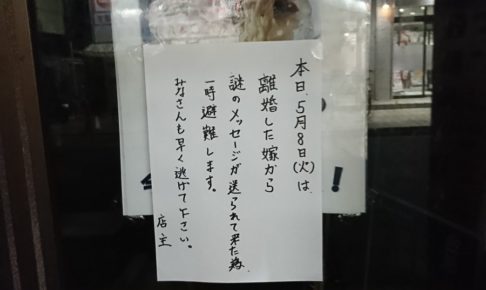 本日、5月8日(火)は、
離婚した嫁から
謎のメッセージが送られて来た為、
一時避難します。
みなさんも早く逃げて下さい。
店主
！